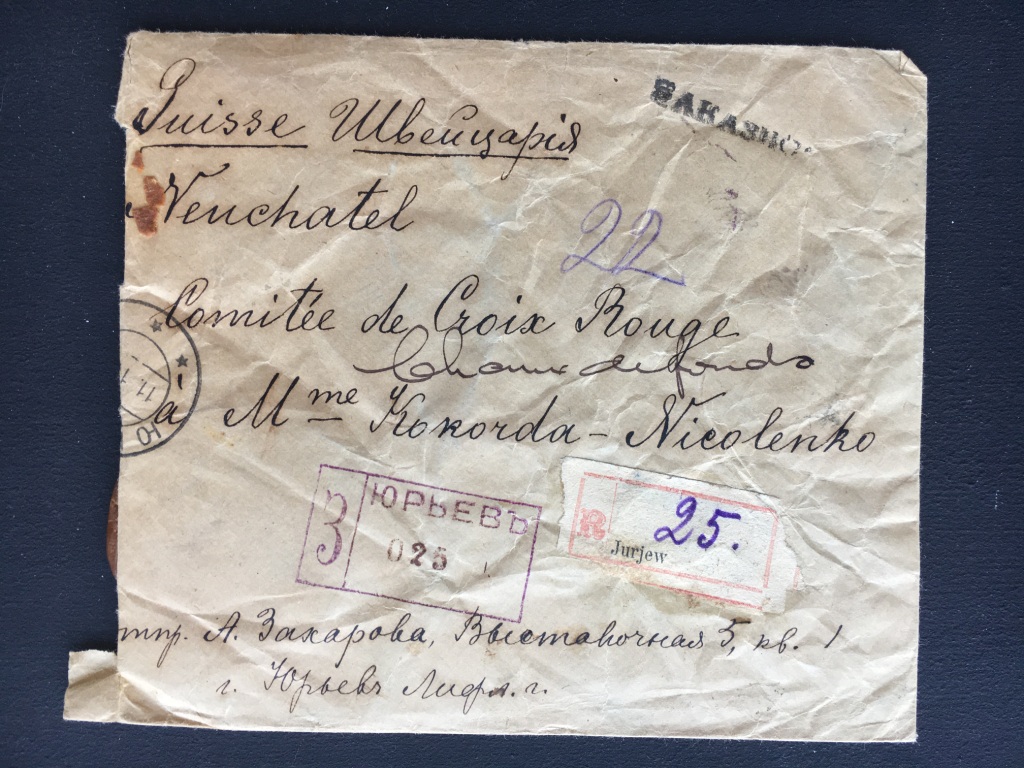 Suisse Швейцарія
ЗАКАЗНО
Neuchatel
22
Comitée de Croix Rouge
Chaux de fonds
à Mme Kokorda - Nicolenko
Ю
З
ЮРЬЕВЪ
025
R
Jurjew
25.
отпр. А. Захарова, Выставочная 5, кв. 1
г. Юрьевъ Лифл. г.